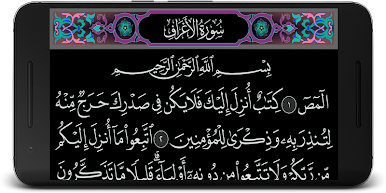 سُورَةُ الأَعْرَافِ
بِسْمِ اللَّهِ الرَّحْمَٰنِ الرَّحِيمِ
الٓمٓصٓ ١ كِتَٰبٌ أُنزِلَ إِلَيْكَ فَلَا يَكُن فِى صَدْرِكَ حَرَجٌ مِّنْهُ
لِتُنذِرَ بِهِۦ وَذِكْرَىٰ لِلْمُؤْمِنِينَ ٢ ٱتَّبِعُوا۟ مَآ أُنزِلَ إِلَيْكُم
مِّن رَّبِّكُمْ وَلَا تَتَّبِعُوا۟ مِن دُونِهِۦٓ أَوْلِيَآءَ ۗ قَلِيلًا مَّا تَذَكَّرُونَ